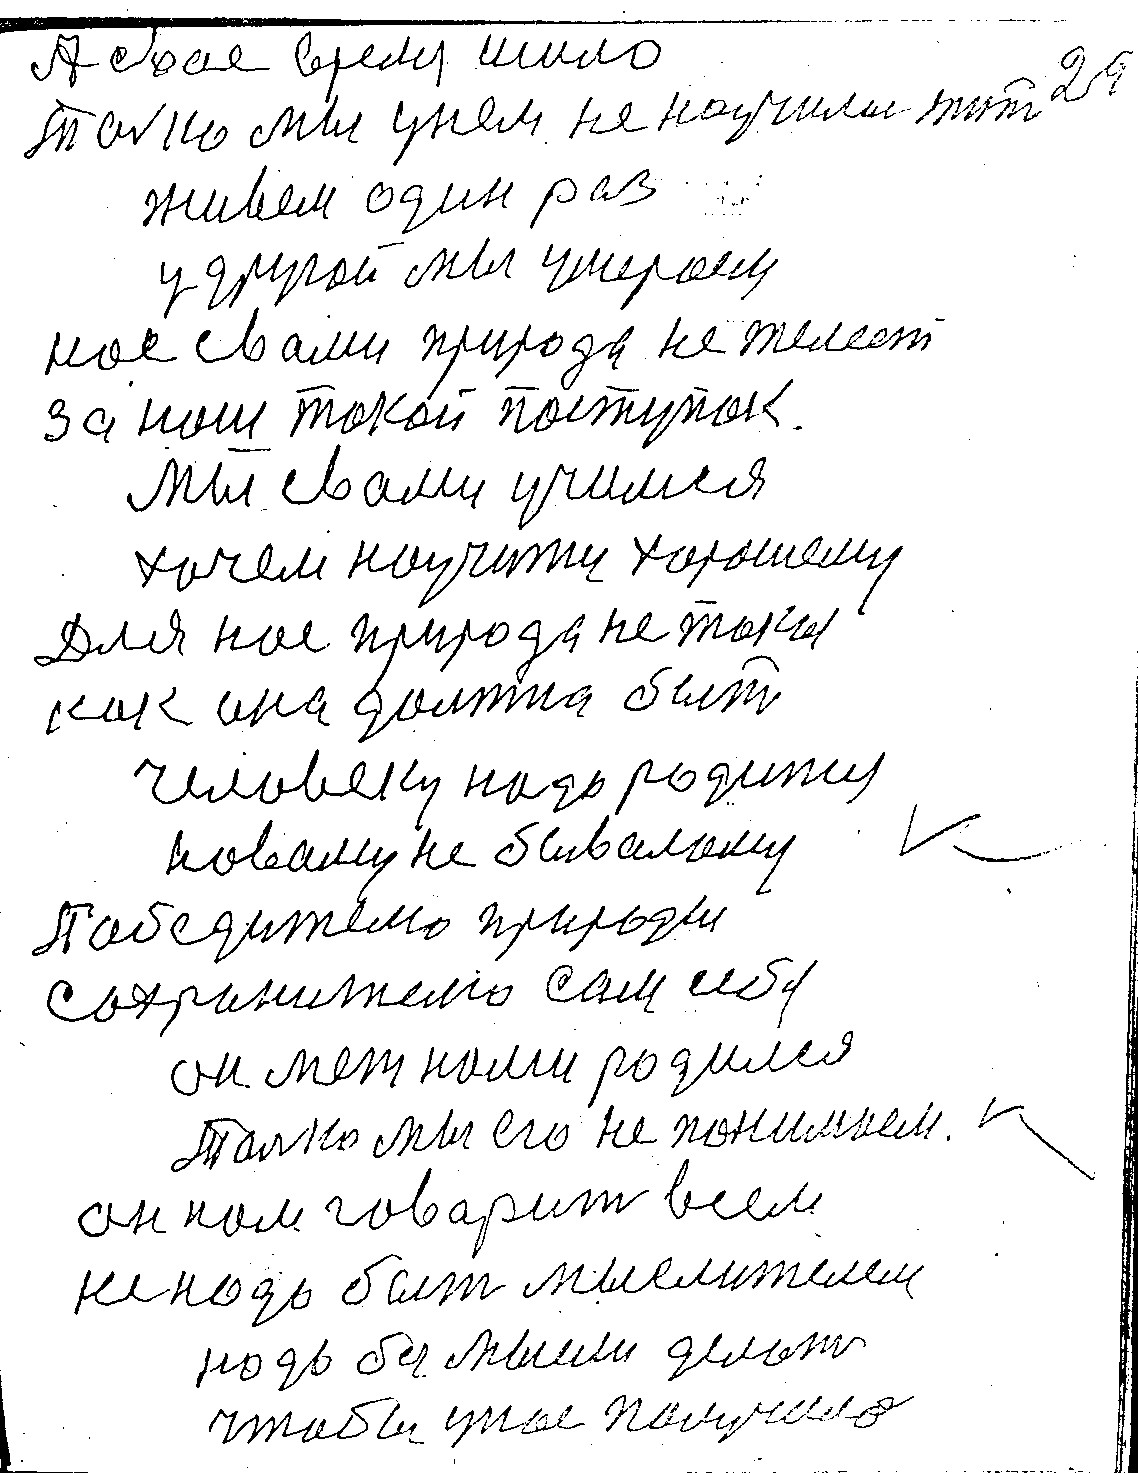 А свое время шило
29
Толко мы у нем не научили жит
живем один раз
у другой мы умераем
нас свами природа не жалеет
за наш такой поступок.
Мы свами учимся
хочем научитц хорошему
Для нас природа не така
как она должна быть
человеку надо родитц
новаму не бывалому
Победителю природы
Сохранителю сам себя
он меж нами родился
Толко мы его не понимаем.
он нам говарит всем
не надо быт мыслителем
надо бы мысли делат
чтобы у нас получило